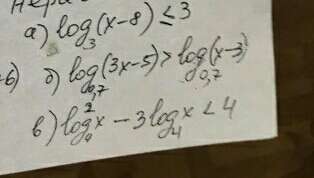 а) log₃(x-8) ≤ 3
-6) б) log₀,₇(3x-5) > log₀,₇(x-3)
в) log₄²x - 3log₄x < 4